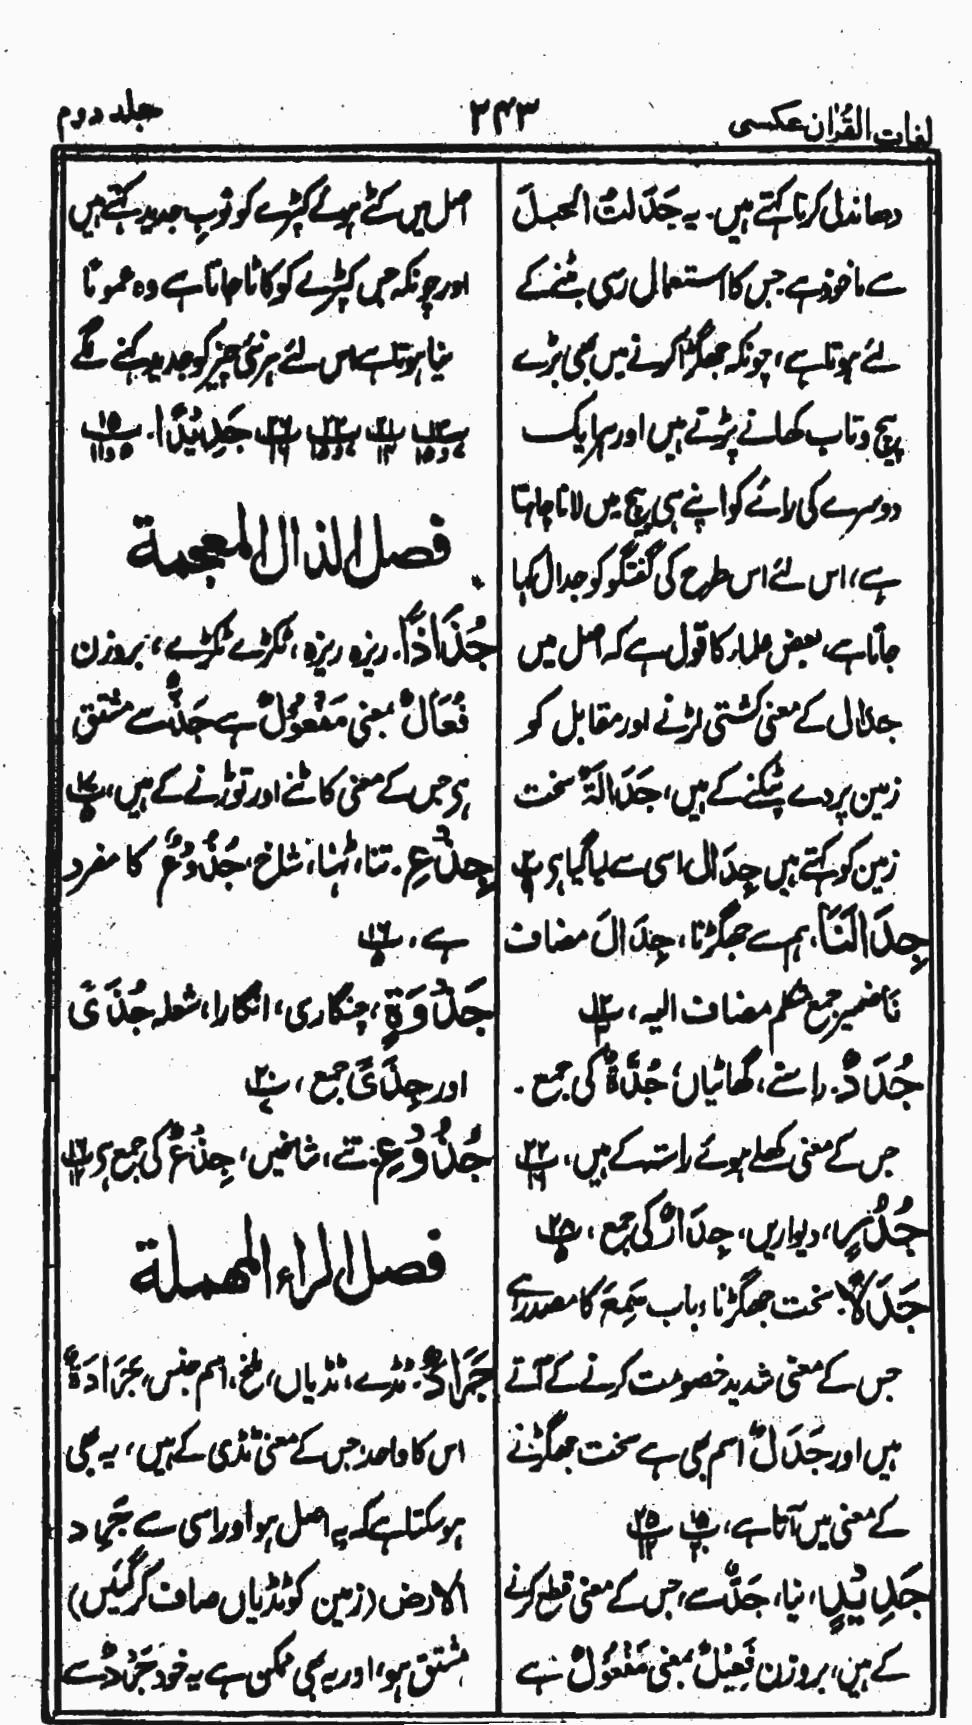 لغات القرآن عکسی
۲۴۳
جلد دوم
دھاندلی کرنا کہتے ہیں۔ یہ جَدَلْتُ الْحَبْلَ
سے ماخوذ ہے جس کا استعمال رسی بٹنے کے
لئے ہوتا ہے، چونکہ جھگڑا کرنے میں بھی بڑے
پیچ و تاب کھانے پڑتے ہیں اور ہر ایک
دوسرے کی رائے کو اپنے ہی پیچ میں لانا چاہتا
ہے، اس لئے اس طرح کی گفتگو کو جدال کہا
جاتا ہے، بعض علماء کا قول ہے کہ اصل میں
جدال کے معنی کشتی لڑنے اور مقابل کو
زمین پر دے پٹکنے کے ہیں، جَدَالَۃٌ سخت
زمین کو کہتے ہیں جِدَال اسی سے لیا گیا ہے
جِدَالَنَا۔ ہم سے جھگڑنا، جِدَالَ مضاف
نَا ضمیر جمع متکلم مضاف الیہ، پ۱۲
جُدَدٌ۔ راستے، گھاٹیاں، جُدَّۃٌ کی جمع۔
جس کے معنی کھلے ہوئے راستہ کے ہیں، پ۲۲ ۱۶
جُدُرٍ، دیواریں، جِدَارٌ کی جمع، پ۲۸
جَدَلًا۔ سخت جھگڑنا، باب سَمِعَ کا مصدر ہے
جس کے معنی شدید خصومت کرنے کے آتے
ہیں اور جَدَلٌ اسم بھی ہے سخت جھگڑنے
کے معنی میں آتا ہے، پ۱۵ ۲۰ پ۲۵ ۱۲
جَدِیْدٍ، نیا، جَدٌّ سے، جس کے معنی قطع کرنے
کے ہیں، بروزن فَعِیْلٌ بمعنی مَفْعُوْلٌ ہے
اصل میں کٹے ہوئے کپڑے کو ثوب جدید کہتے ہیں
اور چونکہ جس کپڑے کو کاٹا جاتا ہے وہ عموماً
نیا ہوتا ہے اس لئے ہر نئی چیز کو جدید کہنے لگے
پ۱۳ پ۲۱ ۱۴ پ۲۲ پ۲۶ ۱۶ جَدِیْدًا۔ پ۱۵ ۵ و ۱۱
فصل الذال المعجمة
جُذَاذًا۔ ریزہ ریزہ، ٹکڑے ٹکڑے، بروزن
فُعَالٌ بمعنی مَفْعُوْلٌ ہے جَذٌّ سے مشتق
ہے جس کے معنی کاٹنے اور توڑنے کے ہیں، پ۱۷
جِذْعِ۔ تنا، ٹہنا، شاخ، جُذُوْعٌ کا مفرد
ہے، پ۱۶
جَذْوَۃٍ، چنگاری، انگارا، شعلہ جُذًی
اور جِذًی جمع، پ۲۰
جُذُوْعِ۔ تنے، شاخیں، جِذْعٌ کی جمع ہے پ۱۶ ۱۲
فصل الراء المهملة
جَرَادٌ۔ ٹڈے، ٹڈیاں، ملخ، اسم جنس، جَرَادَۃٌ
اس کا واحد جس کے معنی ٹڈی کے ہیں، یہ بھی
ہو سکتا ہے کہ یہ اصل ہو اور اسی سے جَرِدَ
الارض (زمین کو ٹڈیاں صاف کر گئیں)
مشتق ہو، اور یہ بھی ممکن ہے یہ خود جَرْدٌ سے